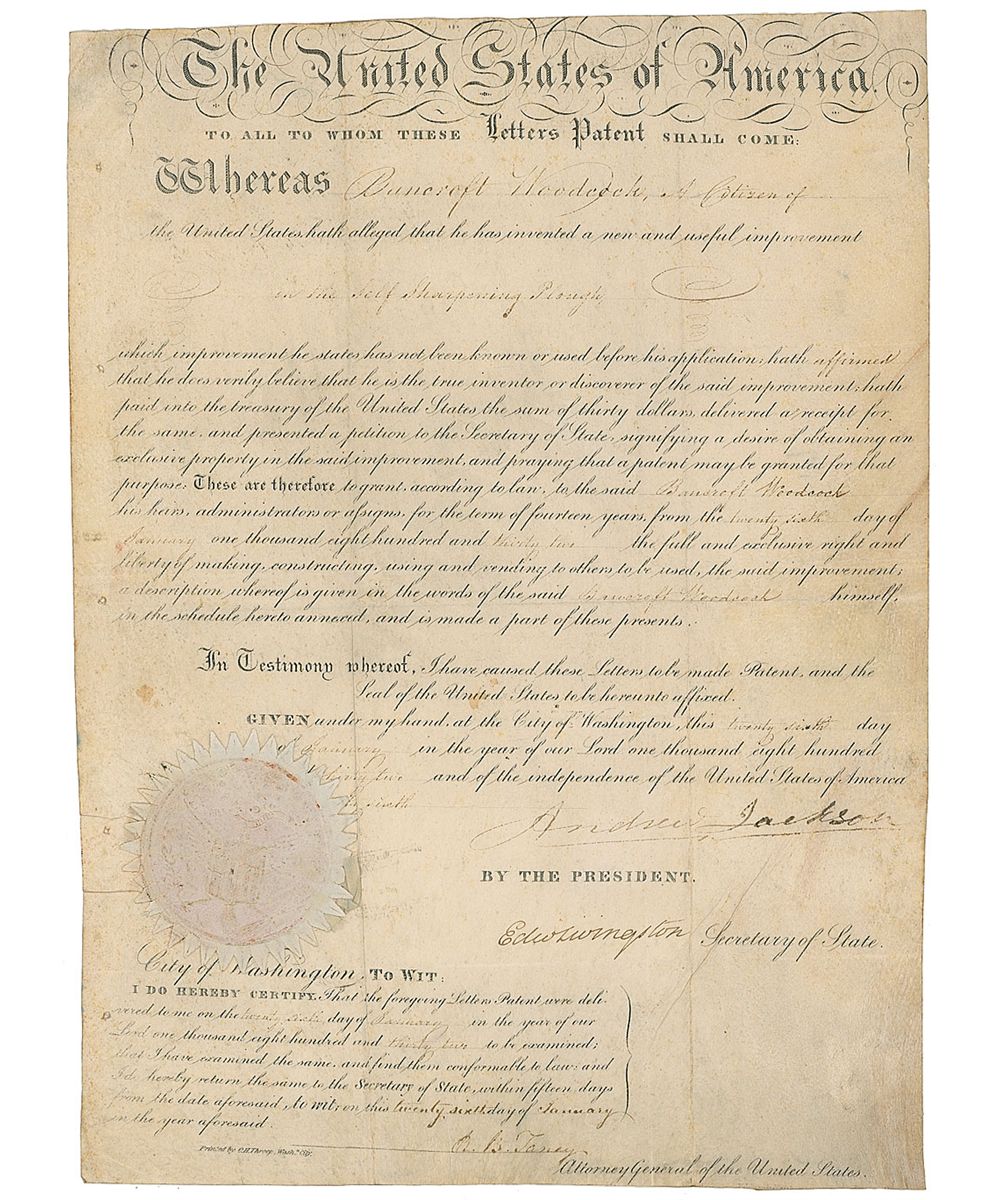 The United States of America.
TO ALL TO WHOM THESE Letters Patent SHALL COME:
Whereas Bancroft Woodcock, A Citizen of
the United States, hath alleged that he has invented a new and useful improvement
in the Self Sharpening Plough
which improvement he states has not been known or used before his application; hath affirmed
that he does verily believe that he is the true inventor or discoverer of the said improvement; hath
paid into the treasury of the United States the sum of thirty dollars, delivered a receipt for
the same, and presented a petition to the Secretary of State, signifying a desire of obtaining an
exclusive property in the said improvement, and praying that a patent may be granted for that
purpose: These are therefore to grant, according to law, to the said Bancroft Woodcock
his heirs, administrators or assigns, for the term of fourteen years, from the twenty sixth day of
January one thousand eight hundred and thirty two the full and exclusive right and
liberty of making, constructing, using and vending to others to be used, the said improvement;
a description whereof is given in the words of the said Bancroft Woodcock himself,
in the schedule hereto annexed, and is made a part of these presents.
In Testimony whereof, I have caused these Letters to be made Patent, and the
Seal of the United States to be hereunto affixed.
GIVEN under my hand, at the City of Washington, this twenty sixth day
of January in the year of our Lord one thousand eight hundred
thirty two and of the independence of the United States of America
sixth
Andrew Jackson
BY THE PRESIDENT.
Edw Livingston Secretary of State.
City of Washington, TO WIT:
I DO HEREBY CERTIFY, That the foregoing Letters Patent were deli-
vered to me on the twenty sixth day of January in the year of our
Lord one thousand eight hundred and thirty two to be examined;
that I have examined the same, and find them conformable to law; and
I do hereby return the same to the Secretary of State, within fifteen days
from the date aforesaid, to wit: on this twenty sixth day of January
in the year aforesaid.
R. B. Taney
Printed by C.H. Throop, Washn. City.
Attorney General of the United States.